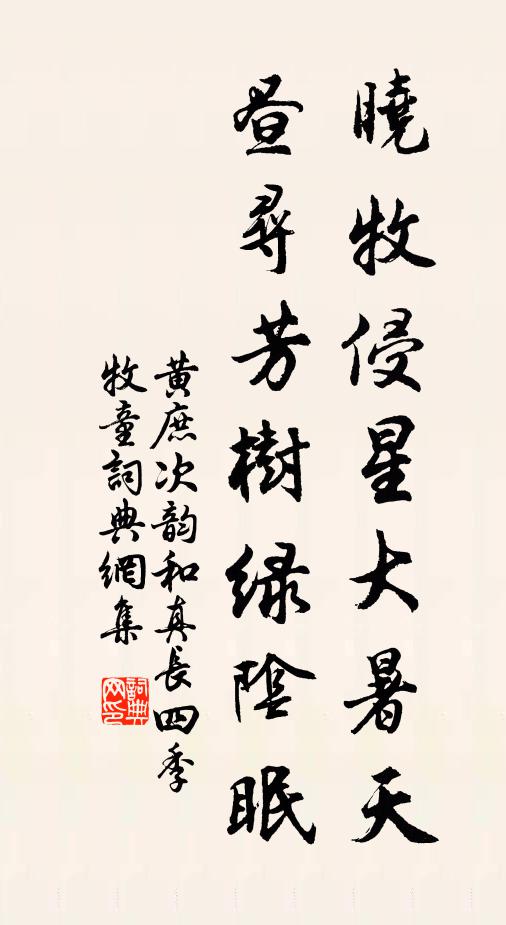 曉牧侵星大暑天
昼尋芳樹緑陰眠
黃庶次韵和真長四季
牧童詞典網集
詞典网印